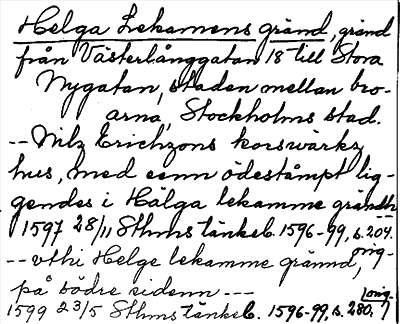 Helga Lekamens gränd, gränd
från Västerlånggatan 18 till Stora
Nygatan, staden mellan bro-
arna, Stockholms stad.
-- Nilz Erichzons korswärkz
hus, med eenn ödestämpt lig-
gendes i Hälga lekamme grändh
1597 28/11 Sthms tänkeb. 1596-99, s. 204.
orig-
-- vthi Helge lekamme gränd,
på södre sidenn ---
1599 23/5 Sthms tänkeb. 1596-99, s. 280,
orig.